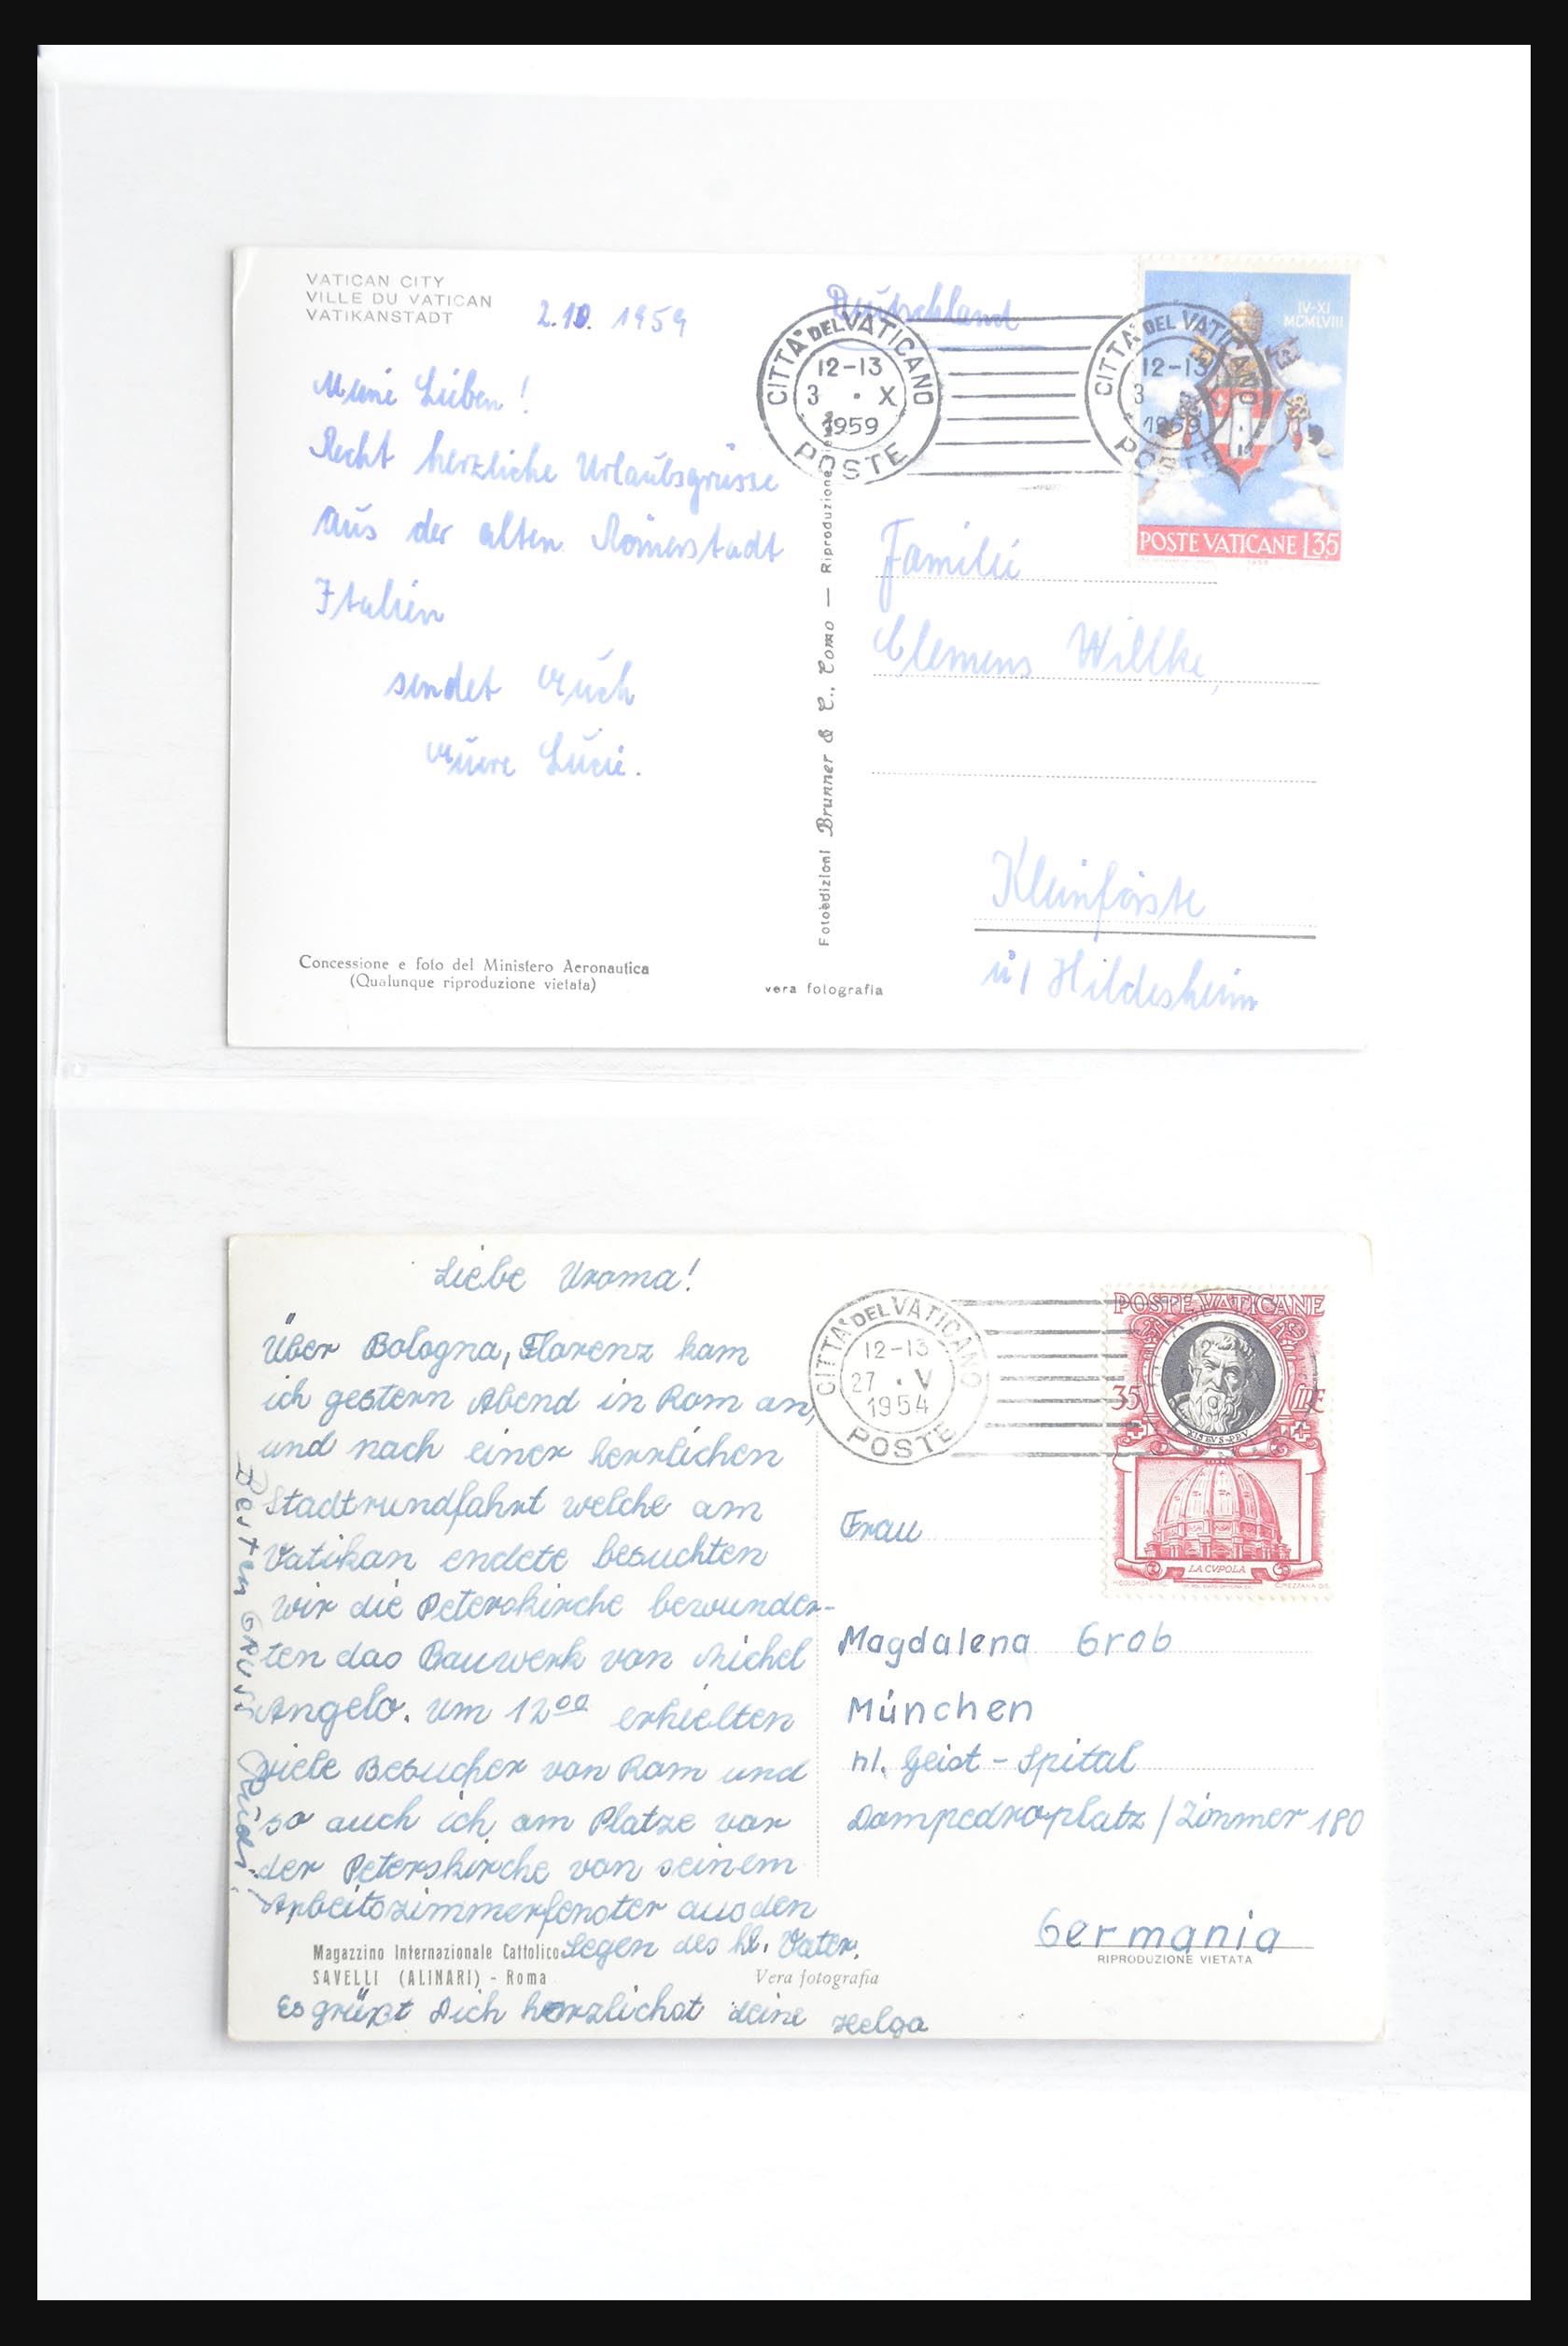 VATICAN CITY
VILLE DU VATICAN
VATIKANSTADT
2.10. 1959
Deutschland
Meine Lieben!
Recht herzliche Urlaubsgrüsse
aus der alten Römerstadt
Italien
sendet Euch
Euere Luzie.
CITTA' DEL VATICANO
12-13
3 · X
1959
POSTE
CITTA' DEL VATICANO
12-13
3
1959
POSTE
IV-XI
MCMLVIII
POSTE VATICANE L35
Familie
Clemens Willke,
Kleinförste
ü/ Hildesheim
Fotoedizioni Brunner & C., Como — Riproduzione
Concessione e foto del Ministero Aeronautica
(Qualunque riproduzione vietata)
vera fotografia
Liebe Uroma!
Über Bologna, Florenz kam
ich gestern Abend in Rom an,
und nach einer herrlichen
Stadtrundfahrt welche am
Vatikan endete besuchten
wir die Peterskirche bewunder-
ten das Bauwerk von Michel
Angelo. Um 12⁰⁰ erhielten
viele Besucher von Rom und
so auch ich am Platze vor
der Peterskirche von seinem
Arbeitszimmerfenster aus den
Segen des hl. Vater.
Es grüßt Dich herzlichst deine Helga
Besten Gruß
Magazzino Internazionale Cattolico
SAVELLI (ALINARI) - Roma
Vera fotografia
CITTA' DEL VATICANO
12-13
27 · V
1954
POSTE
POSTE VATICANE
35
LA CVPOLA
Frau
Magdalena Grob
München
hl. Geist - Spital
Dompedroplatz / Zimmer 180
Germania
RIPRODUZIONE VIETATA